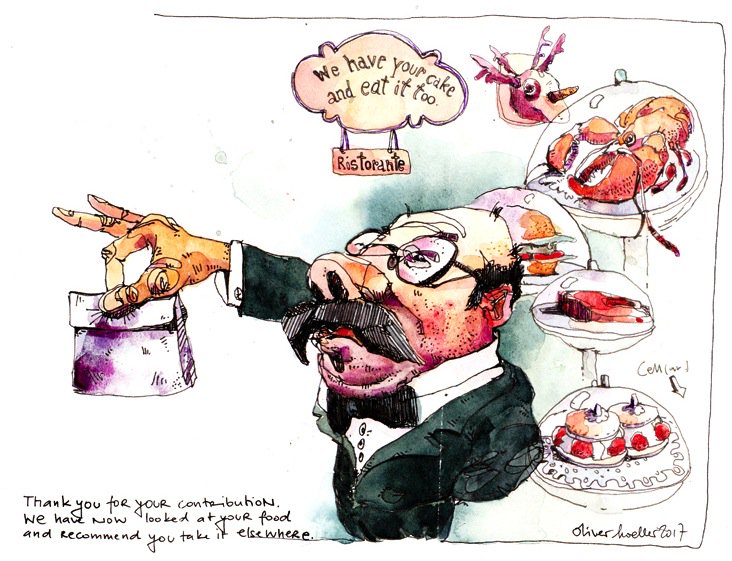 We have your cake
and eat it too.
Ristorante
Thank you for your contribution.
We have now looked at your food
and recommend you take it elsewhere.
oliver hoeller 2017